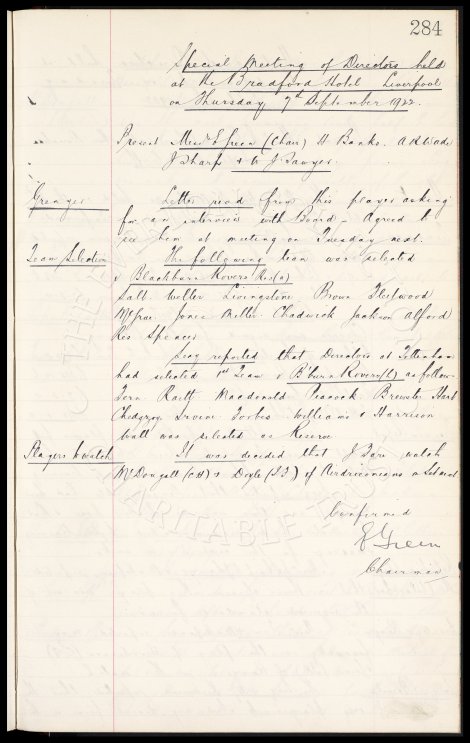 284
Special Meeting of Directors held
at the Bradford Hotel Liverpool
on Thursday 7th September 1922.
Present Messrs E Green (Chair) H Banks. A R Wade
J Sharp & W J Sawyer.
Letter read from this player asking
for an interview with Board - Agreed to
see him at meeting on Tuesday next.
Team Selection
The following team was selected
v Blackburn Rovers Res (a)
Salt. Weller Livingstone. Brown Fleetwood
McGrae. Jones Miller. Chadwick Jackson Alford
Res Spencer
Secy reported that Directors at Tottenham
had selected 1st Team v B'burn Rovers (h) as follow-
Fern Raitt Macdonald. Peacock Brewster Hart
Chedgzoy Irvine Forbes Williams & Harrison
Wall was selected as Reserve
Players to watch
It was decided that J watch
McDougall (CH) & Doyle () of Airdrieonians on Saturday
Confirmed
E Green
Chairman
CHARITABLE TRUST